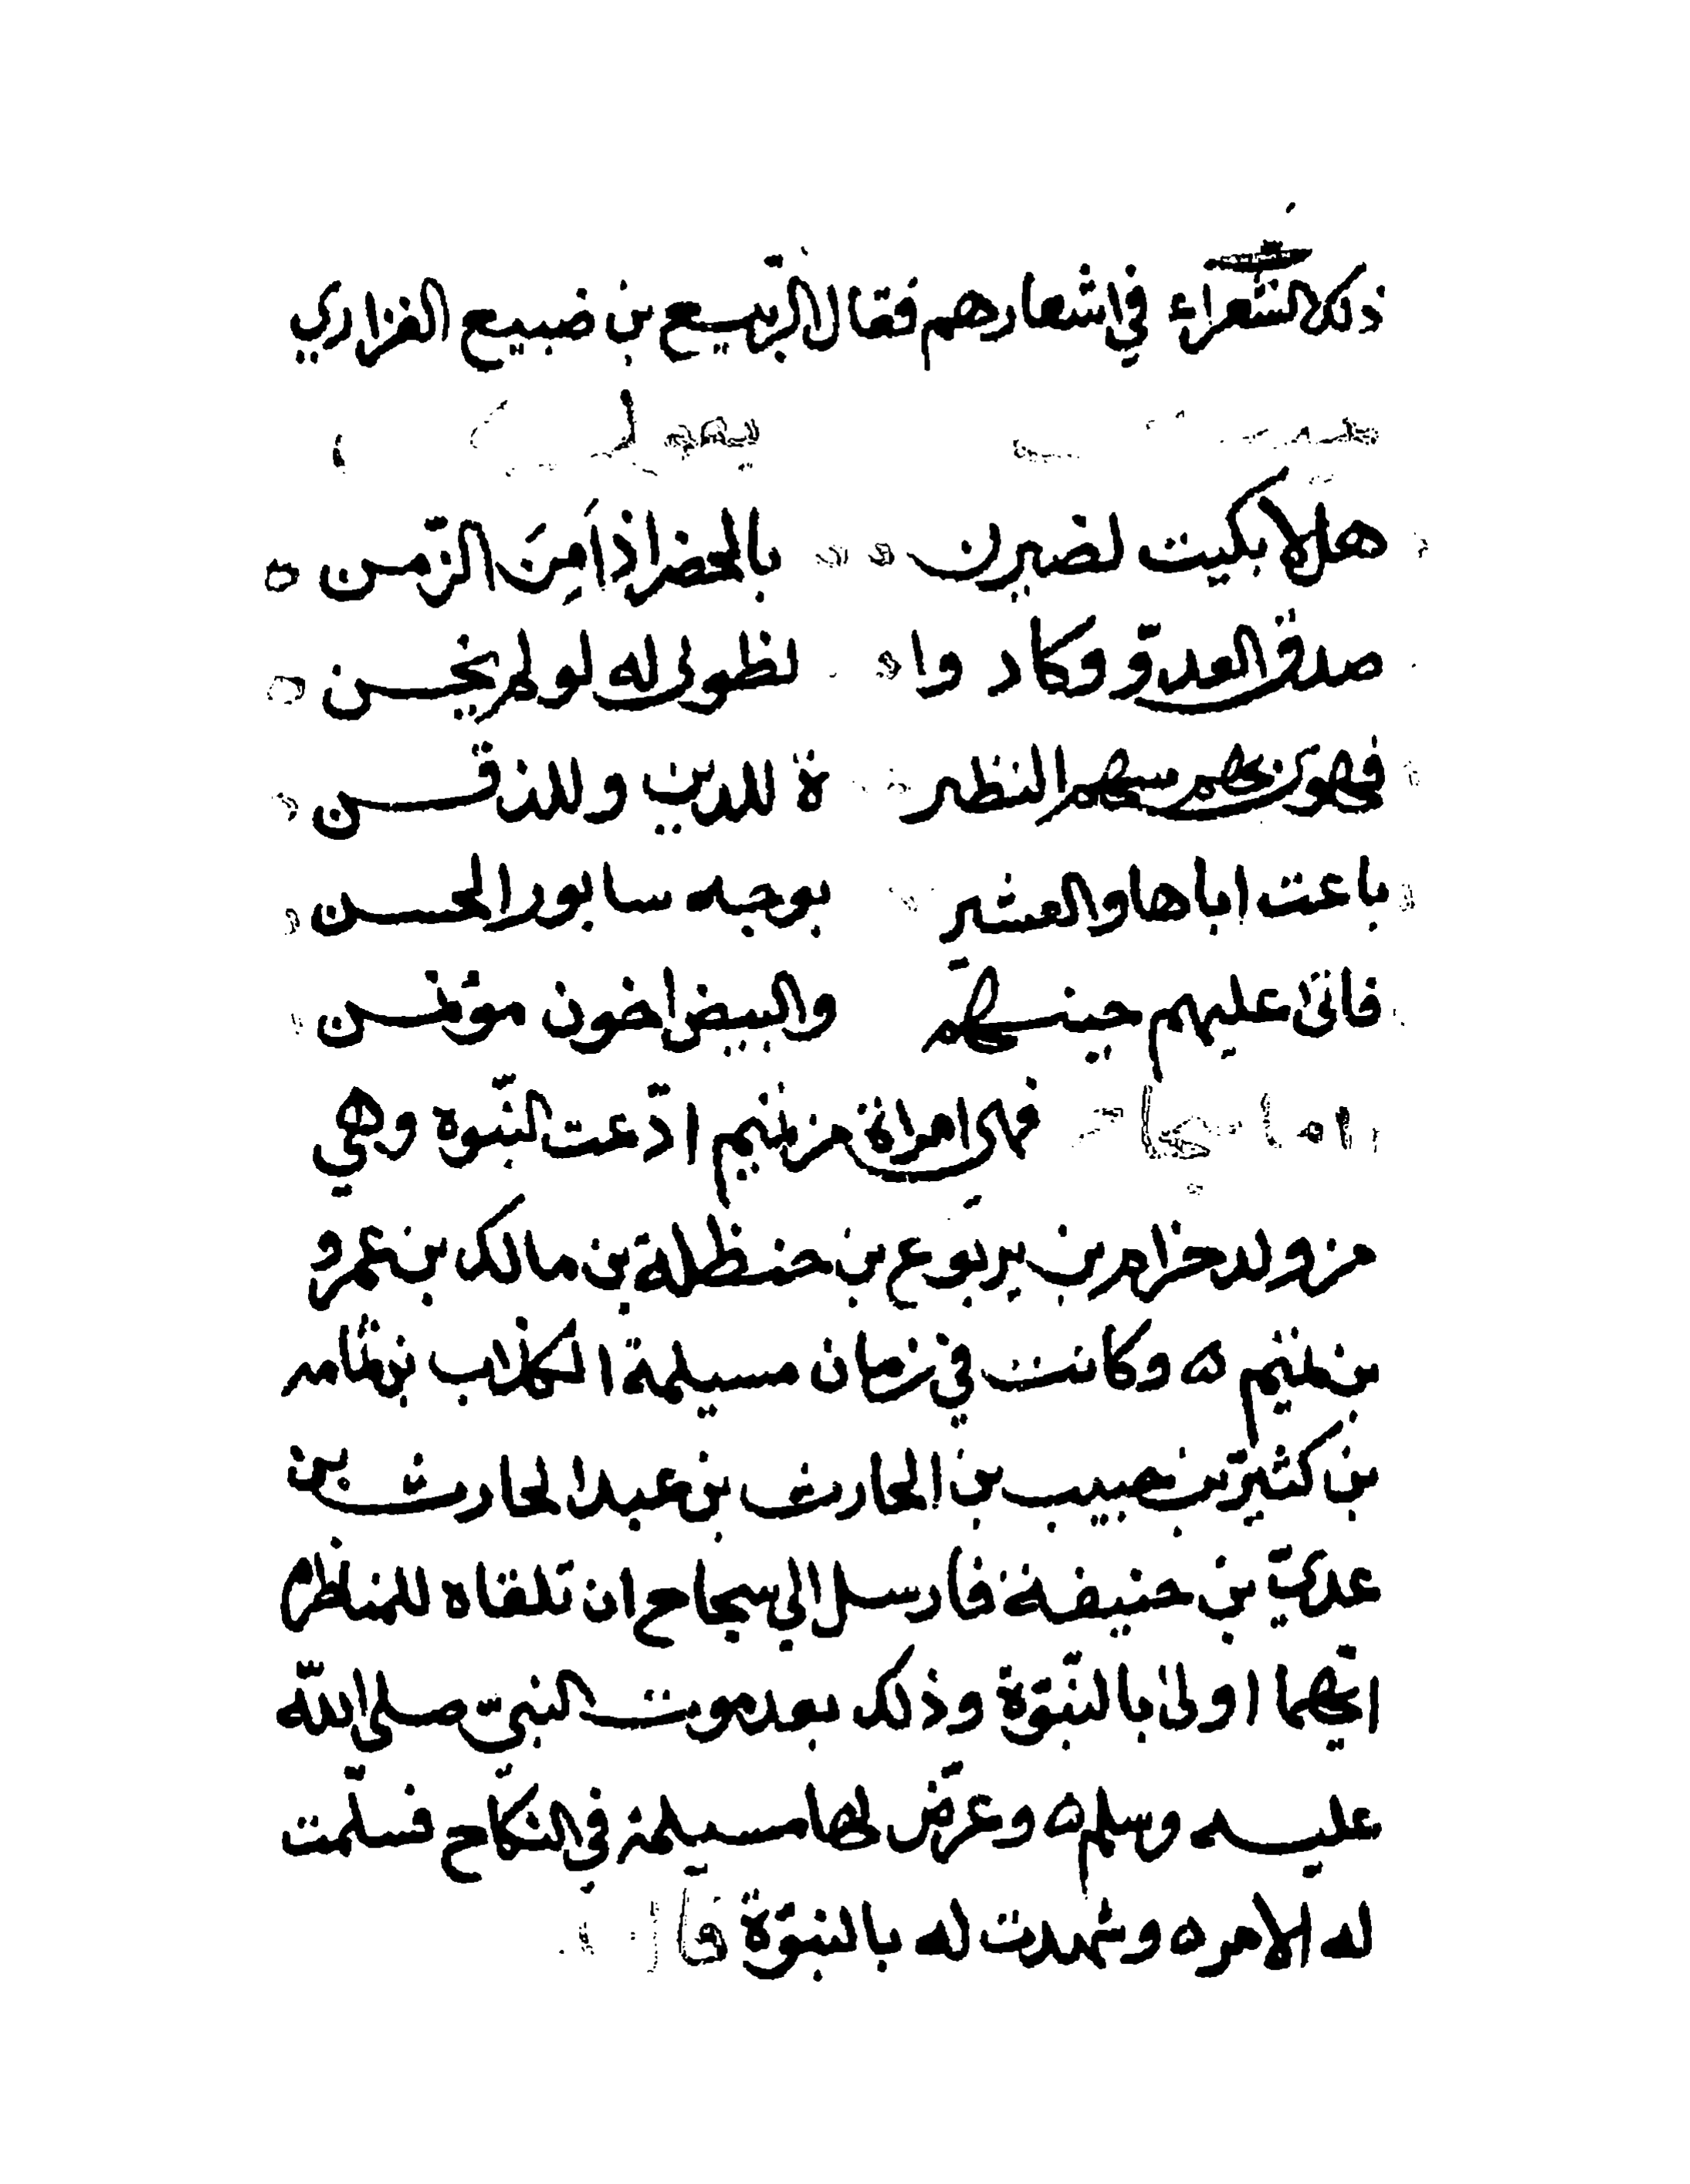 ذلك الشعراء في اشعارهم فقال الربيع بن ضبيع الفزاري
هلا بكيت لضيزن بالحضر اذ أمِنَ الزمن
صدق العدوّ وكاد وا لطولى له لو لم يخسن
فهوى بهم سهم النظير ة للدين وللذقسن
باعت اباها والعشير بوجه سابور الحسن
فاتى عليهم حينهم والبيض اخون موتمن
واما سجاح فهي امراة من تميم ادّعت النبّوة وهي
من ولد حزام بن يربوع بن حنظلة بن مالك بن عمرو
بن تميم ه وكانت في زمان مسيلمة الكذاب بن ثمامه
بن كثير بن حبيب بن الحارث بن عبد الحارث بن
عديّ بن حنيفة فارسل الي سجاح ان تلقاه للمناظره
ايّهما اولى بالنبّوة وذلك بعد موت النبيّ صلى الله
عليه وسلم ه وعرّض لها مسيلمة في النكاح فسلّمت
له الامر ه وشهدت له بالنبوّة قال